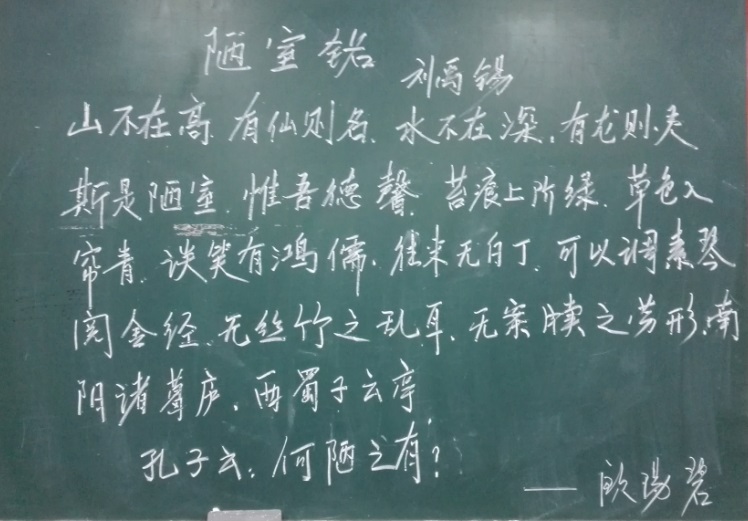 陋室铭 刘禹锡
山不在高,有仙则名.水不在深,有龙则灵
斯是陋室.惟吾德馨.苔痕上阶绿.草色入
帘青.谈笑有鸿儒.往来无白丁.可以调素琴
阅金经.无丝竹之乱耳.无案牍之劳形.南
阳诸葛庐.西蜀子云亭
孔子云:何陋之有?
——欧阳碧